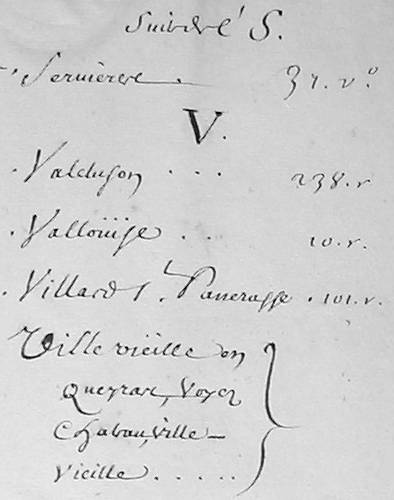 Suitte de l'S.
Servieres . 37. vo.
V.
. Valcluson . . . 238. r
. Vallouïse . . 10. r.
. Villard St. Pancrasse . 101. r.
Ville vieille en
Queyras, Voyez
Chateau, ville
Vieille . . . . .